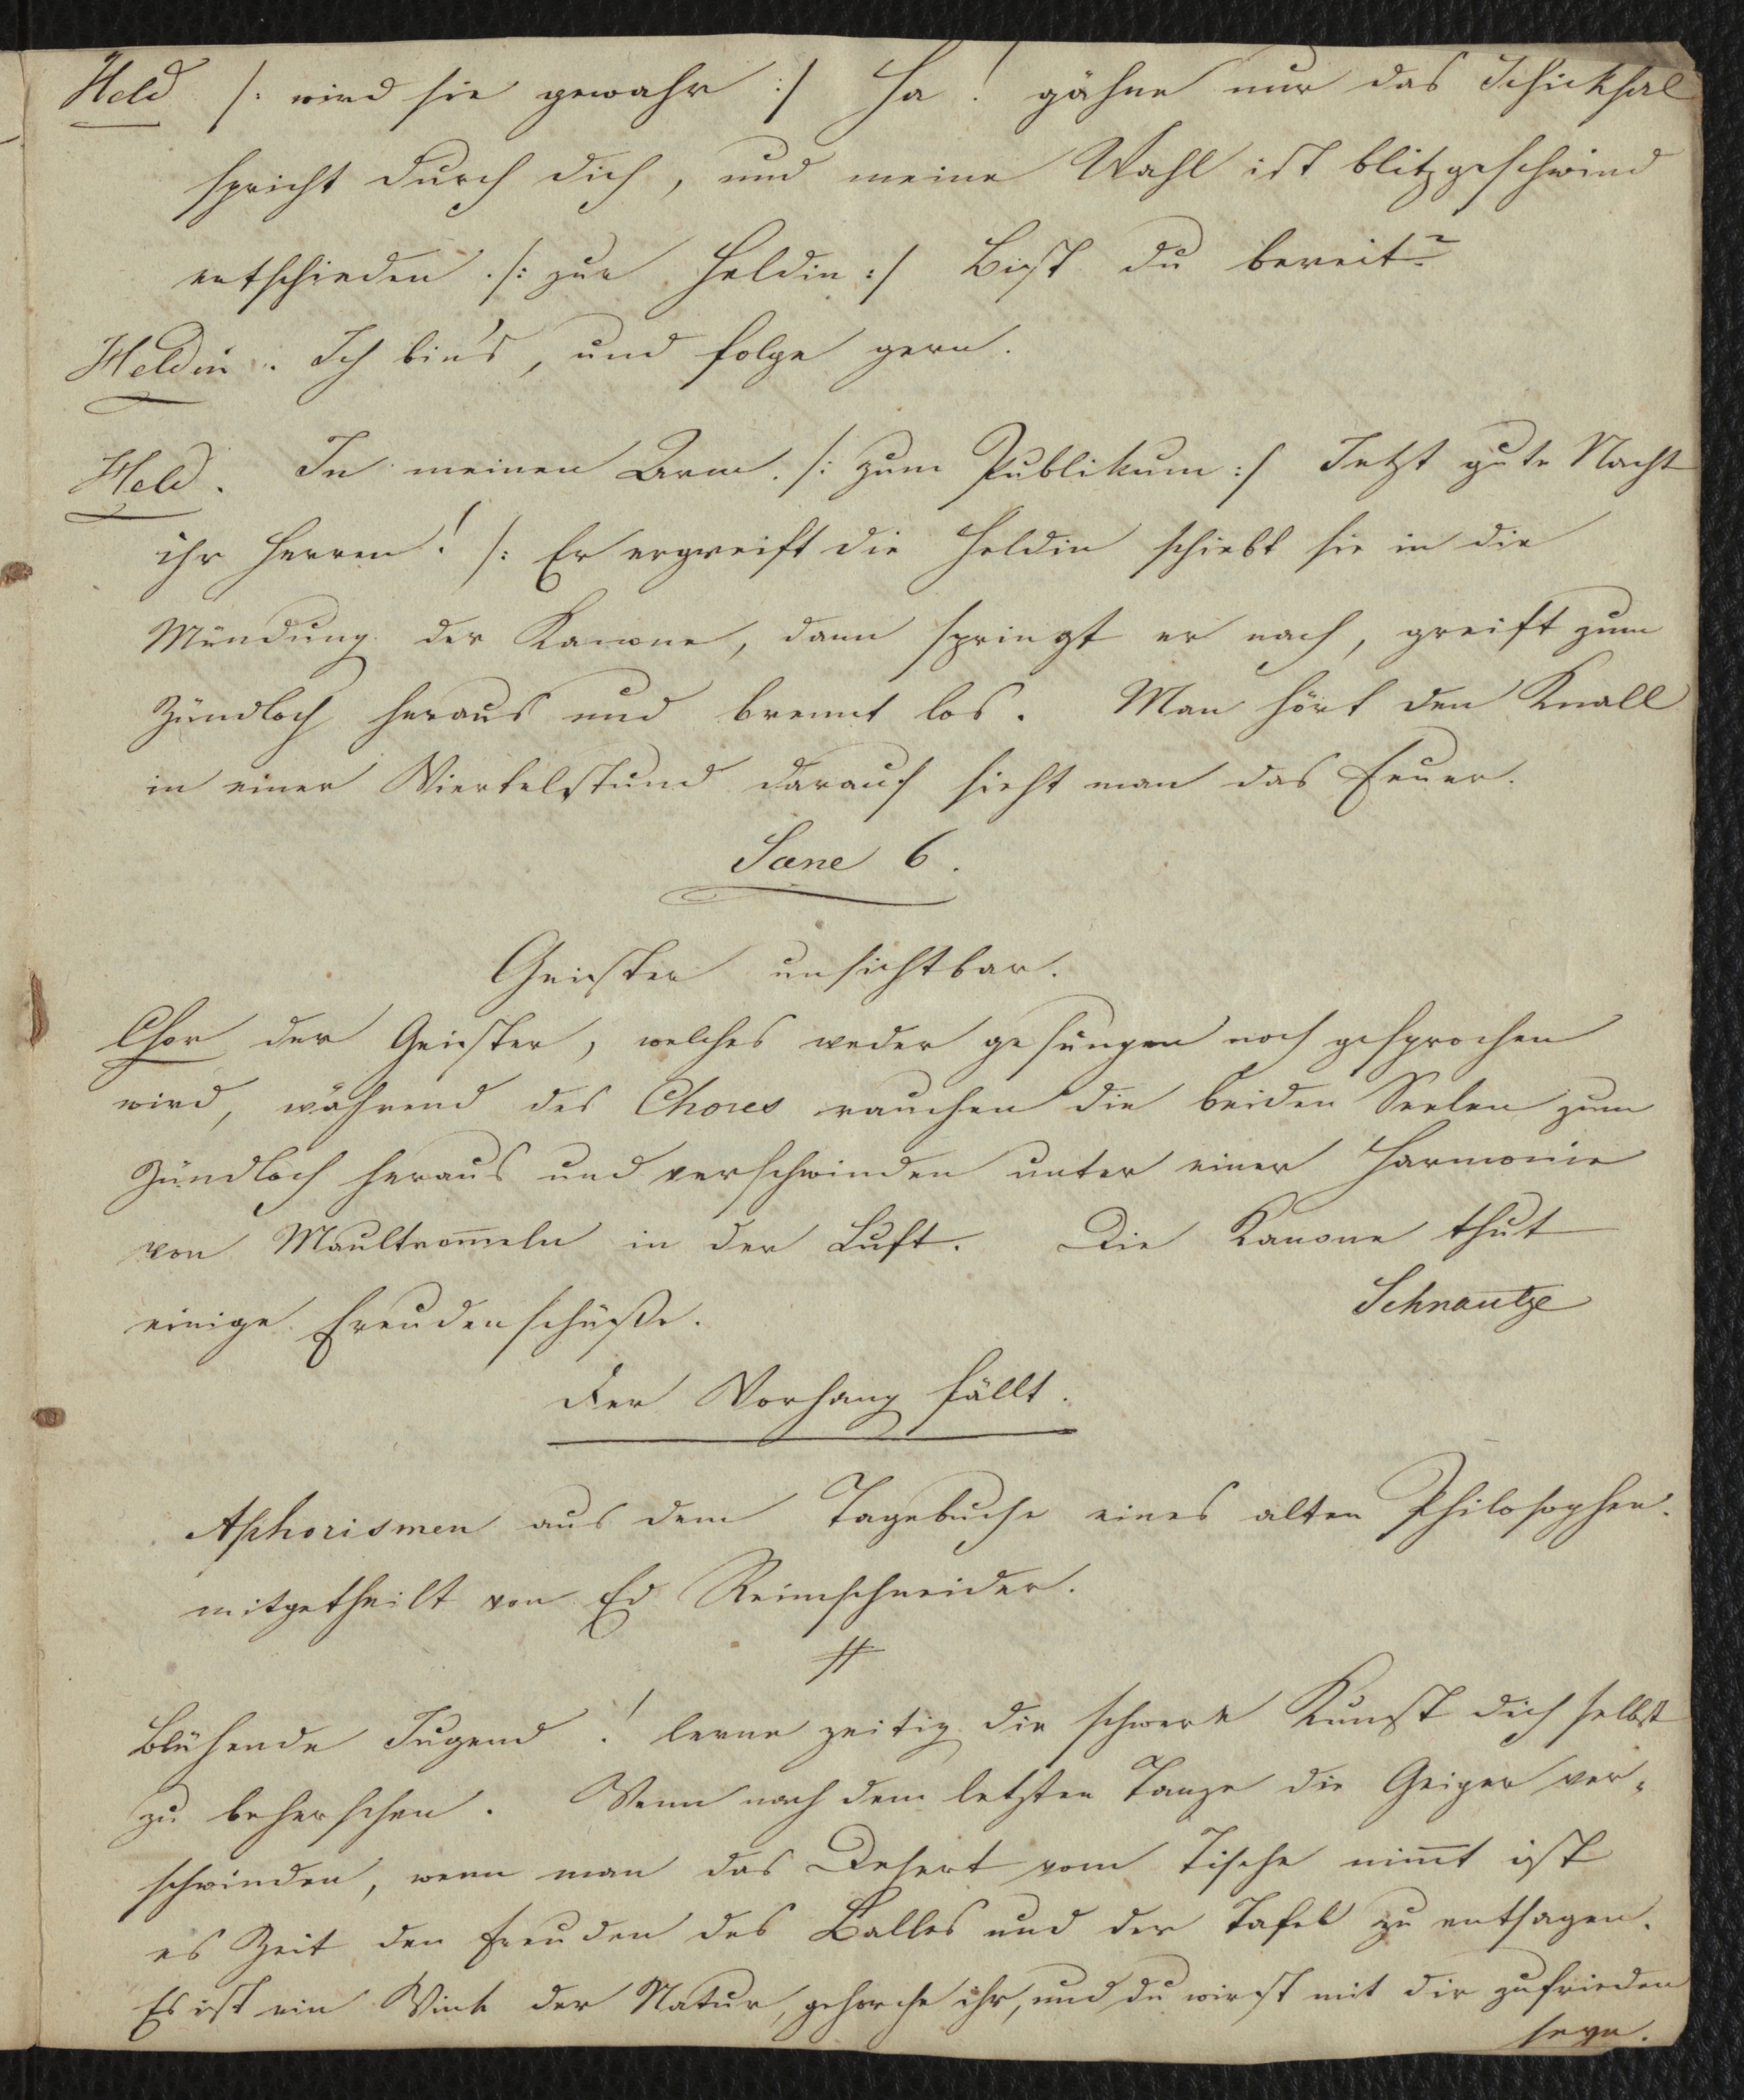 Held /: wird sie gewahr :/ Ha! gähne nur das Schicksal
spricht durch dich, und meine Wahl ist blitzgeschwind
entschieden. /: zur Heldin :/ Bist du bereit?
Heldin. Ich bin's, und folge gern.
Held. In meinen Arm. /: zum Publikum :/ Jetzt gute Nacht
ihr Herren! /: Er ergreift die Heldin schiebt sie in die
Mündung der Kanone, dann springt er nach, greift zum
Zündloch heraus und brennt los. Man hört den Knall
in einer Viertelstund darauf sieht man das Feuer.
Scene 6.
Geister unsichtbar.
Chor der Geister, welches weder gesungen noch gesprochen
wird, während des Chores rauchen die beiden Seelen zum
Zündloch heraus und verschwinden unter einer Harmonie
von Maultrom̅eln in der Luft. Die Kanone thut
einige Freudenschüße.
Schnautze
Der Vorhang fällt.
Aphorismen aus dem Tagebuche eines alten Philosophen.
mitgetheilt von Ed Reimschneider.
Blühende Jugend! lerne zeitig die schwere Kunst dich selbst
zu beherschen. Wenn nach dem letzten Tanze die Geiger ver-
schwinden, wenn man das Desert vom Tische nim̅t ist
es Zeit den Freuden des Balles und der Tafel zu entsagen.
Es ist ein Wink der Natur, gehorche ihr, und du wirst mit dir zufrieden
seyn.